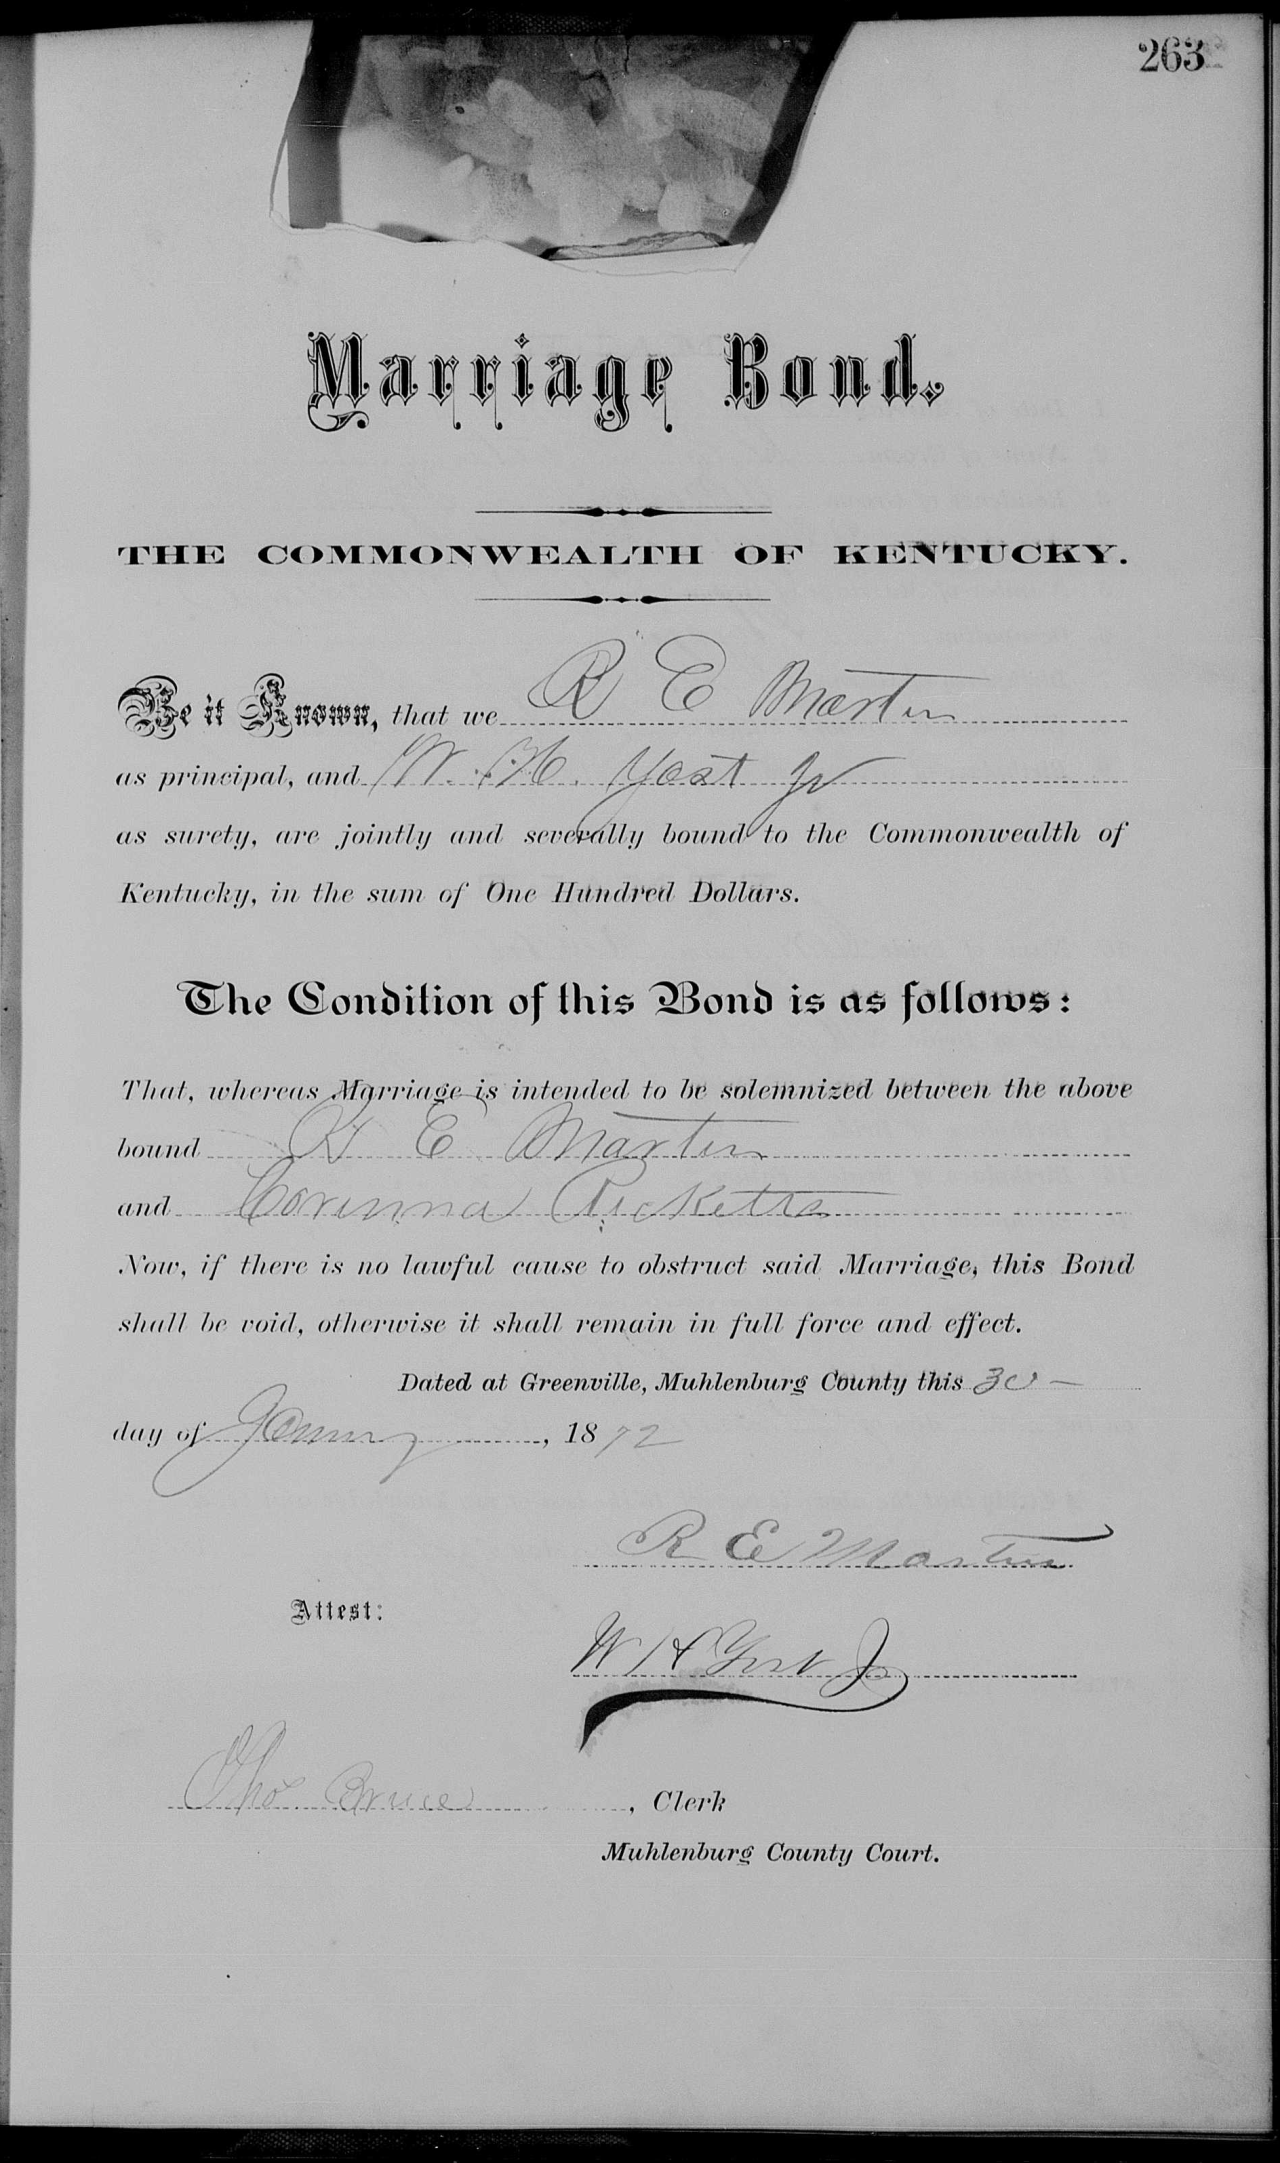 263
Marriage Bond.
THE COMMONWEALTH OF KENTUCKY.
Be it Known, that we R E Martin
as principal, and W. H. Yost Jr
as surety, are jointly and severally bound to the Commonwealth of
Kentucky, in the sum of One Hundred Dollars.
The Condition of this Bond is as follows:
That, whereas Marriage is intended to be solemnized between the above
bound R E Martin
and Corinna Ricketts
Now, if there is no lawful cause to obstruct said Marriage, this Bond
shall be void, otherwise it shall remain in full force and effect.
Dated at Greenville, Muhlenburg County this 30 -
day of January, 1872
R E Martin
Attest:
W H Yost Jr
Thos Bruce, Clerk
Muhlenburg County Court.